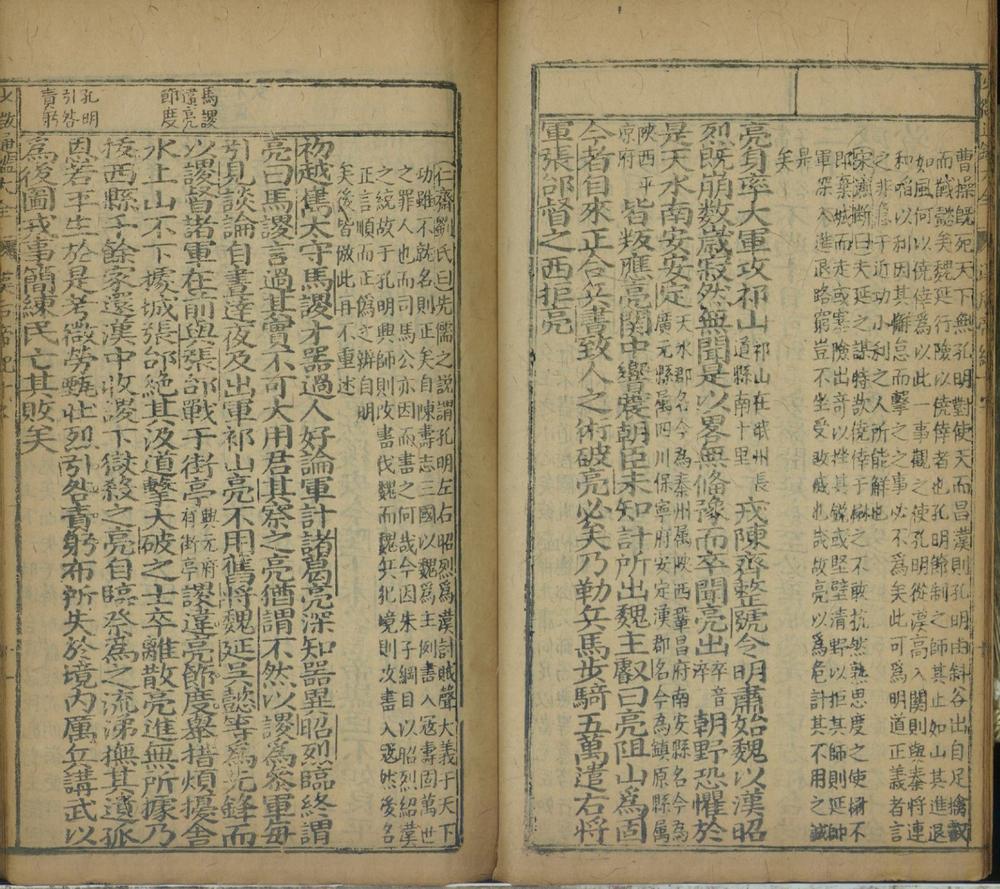 曹操既死天下無孔明對使天而昌漢則孔明由斜谷出自足擒叡
而馘懿矣魏延行險以僥倖者也孔明節制之師其止如山其進退
如風何以僥倖為以此一事觀之使孔明從淳高入關則與秦將連
和啗以利因其懈怠而擊之之事必不為矣此可為明道正義者言
之非急于近功小利之人所能解也
宋濂斷曰夫延之謀特欲僥倖于楙之不敢抗然熟思度之使楙不
即棄城而走或塞險出奇以挫其銳或堅壁清野以拒其師則延師
軍深入進退路窮豈不坐受敗衂也哉故亮以為危計其不用之誠
是矣
亮身率大軍攻祁山祁山在岷州長道縣南十里戎陳齊整號令明肅始魏以漢昭
烈既崩數歲寂然無聞是以畧無備豫而卒聞亮出卒音淬朝野恐懼於
是天水南安安定天水郡名今為秦州属陝西鞏昌府南安縣名今為廣元縣屬四川保寧府安定漢郡名今為鎮原縣属
陝西平京府皆叛應亮關中響震朝臣未知計所出魏主叡曰亮阻山為固
今者自來正合兵書致人之術破亮必矣乃勒兵馬步騎五萬遣右將
軍張郃督之西拒亮
仁齋劉氏曰先儒之説謂孔明左右昭烈為漢討賊聲大義于天下
功雖不就名則正矣自陳壽志三國以魏為主例書入寇壽固萬世
之罪人也而司馬公亦因而書之何哉今因朱子綱目以昭烈紹漢
之統故于孔明興師則改書伐魏而魏兵犯境則改書入寇然後名
正言順而正偽之辨自明
矣後皆倣此再不重述
初越嶲太守馬謖才器過人好論軍計諸葛亮深知器異昭烈臨終謂
亮曰馬謖言過其實不可大用君其察之亮猶謂不然以謖為參軍每
引見談論自晝達夜及出軍祁山亮不用舊將魏延吳懿等為先鋒而
以謖督諸軍在前與張郃戰于街亭興元府有街亭謖違亮節度舉措煩擾舍
水上山不下據城張郃絶其汲道擊大破之士卒離散亮進無所據乃
拔西縣千餘家還漢中收謖下獄殺之亮自臨祭為之流涕撫其遺孤
恩若平生於是考微勞甄壮烈引咎責躬布所失於境内厲兵講武以
為後圖戎事簡練民亡其敗矣
馬謖
違亮
節度
孔明
引咎
責躬